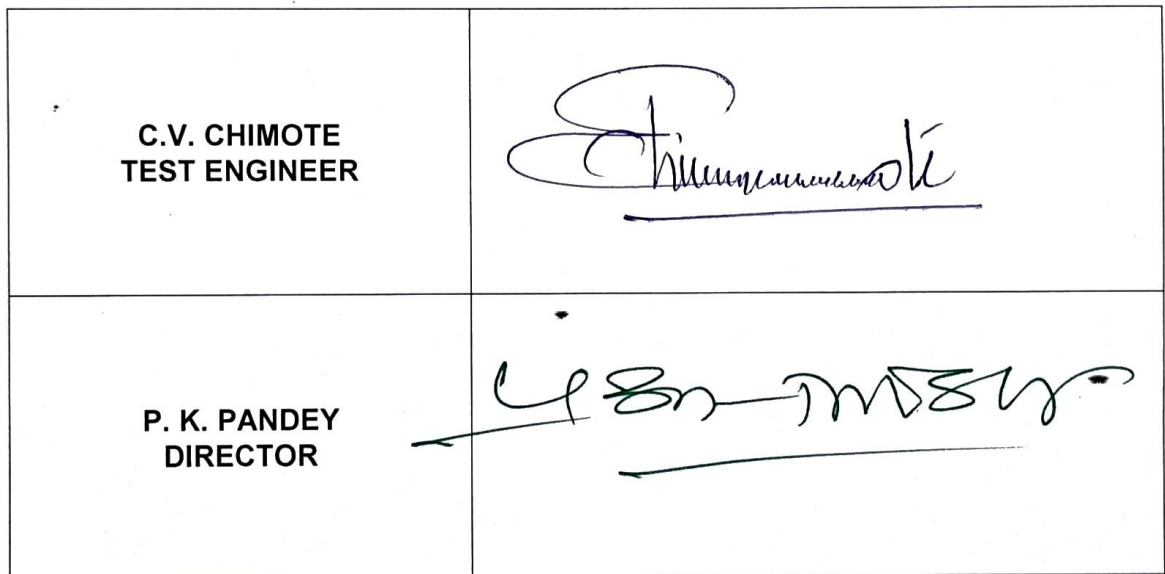 C.V. CHIMOTE
TEST ENGINEER
P. K. PANDEY
DIRECTOR